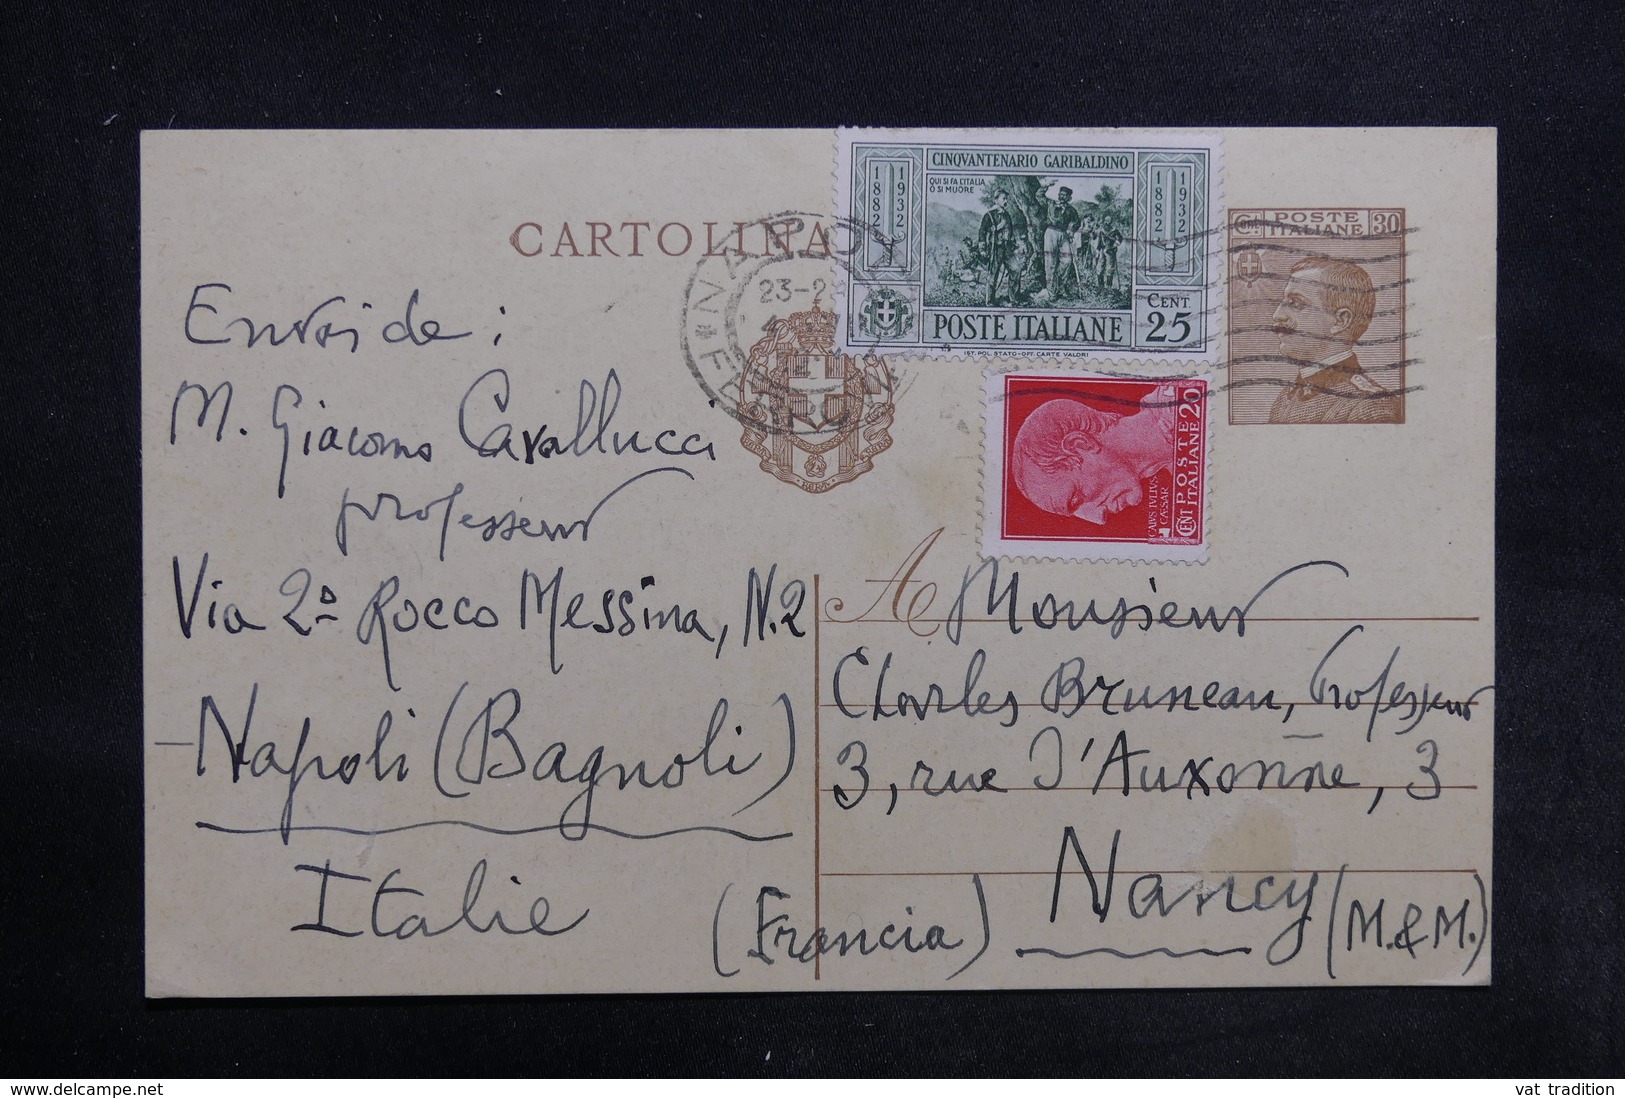 CARTOLINA
CINQVANTENARIO GARIBALDINO
QUI SI FA L'ITALIA
O SI MUORE
1882
1932
1882
1932
CENT.
25
POSTE ITALIANE
IST. POL. STATO-OFF. CARTE VALORI
POSTE
ITALIANE
30
23-2
NAPOLI
FERT
POSTE
ITALIANE
CENT 20
CAIVS IVLIVS
CAESAR
Envoi de :
M. Giacomo Cavallucci
professeur
Via 2ª Rocco Messina, N. 2
Napoli (Bagnoli)
Italie
A Monsieur
Charles Bruneau, Professeur
3, rue d'Auxonne, 3
Nancy (M. & M.)
(Francia)
delcampe.net
vat tradition